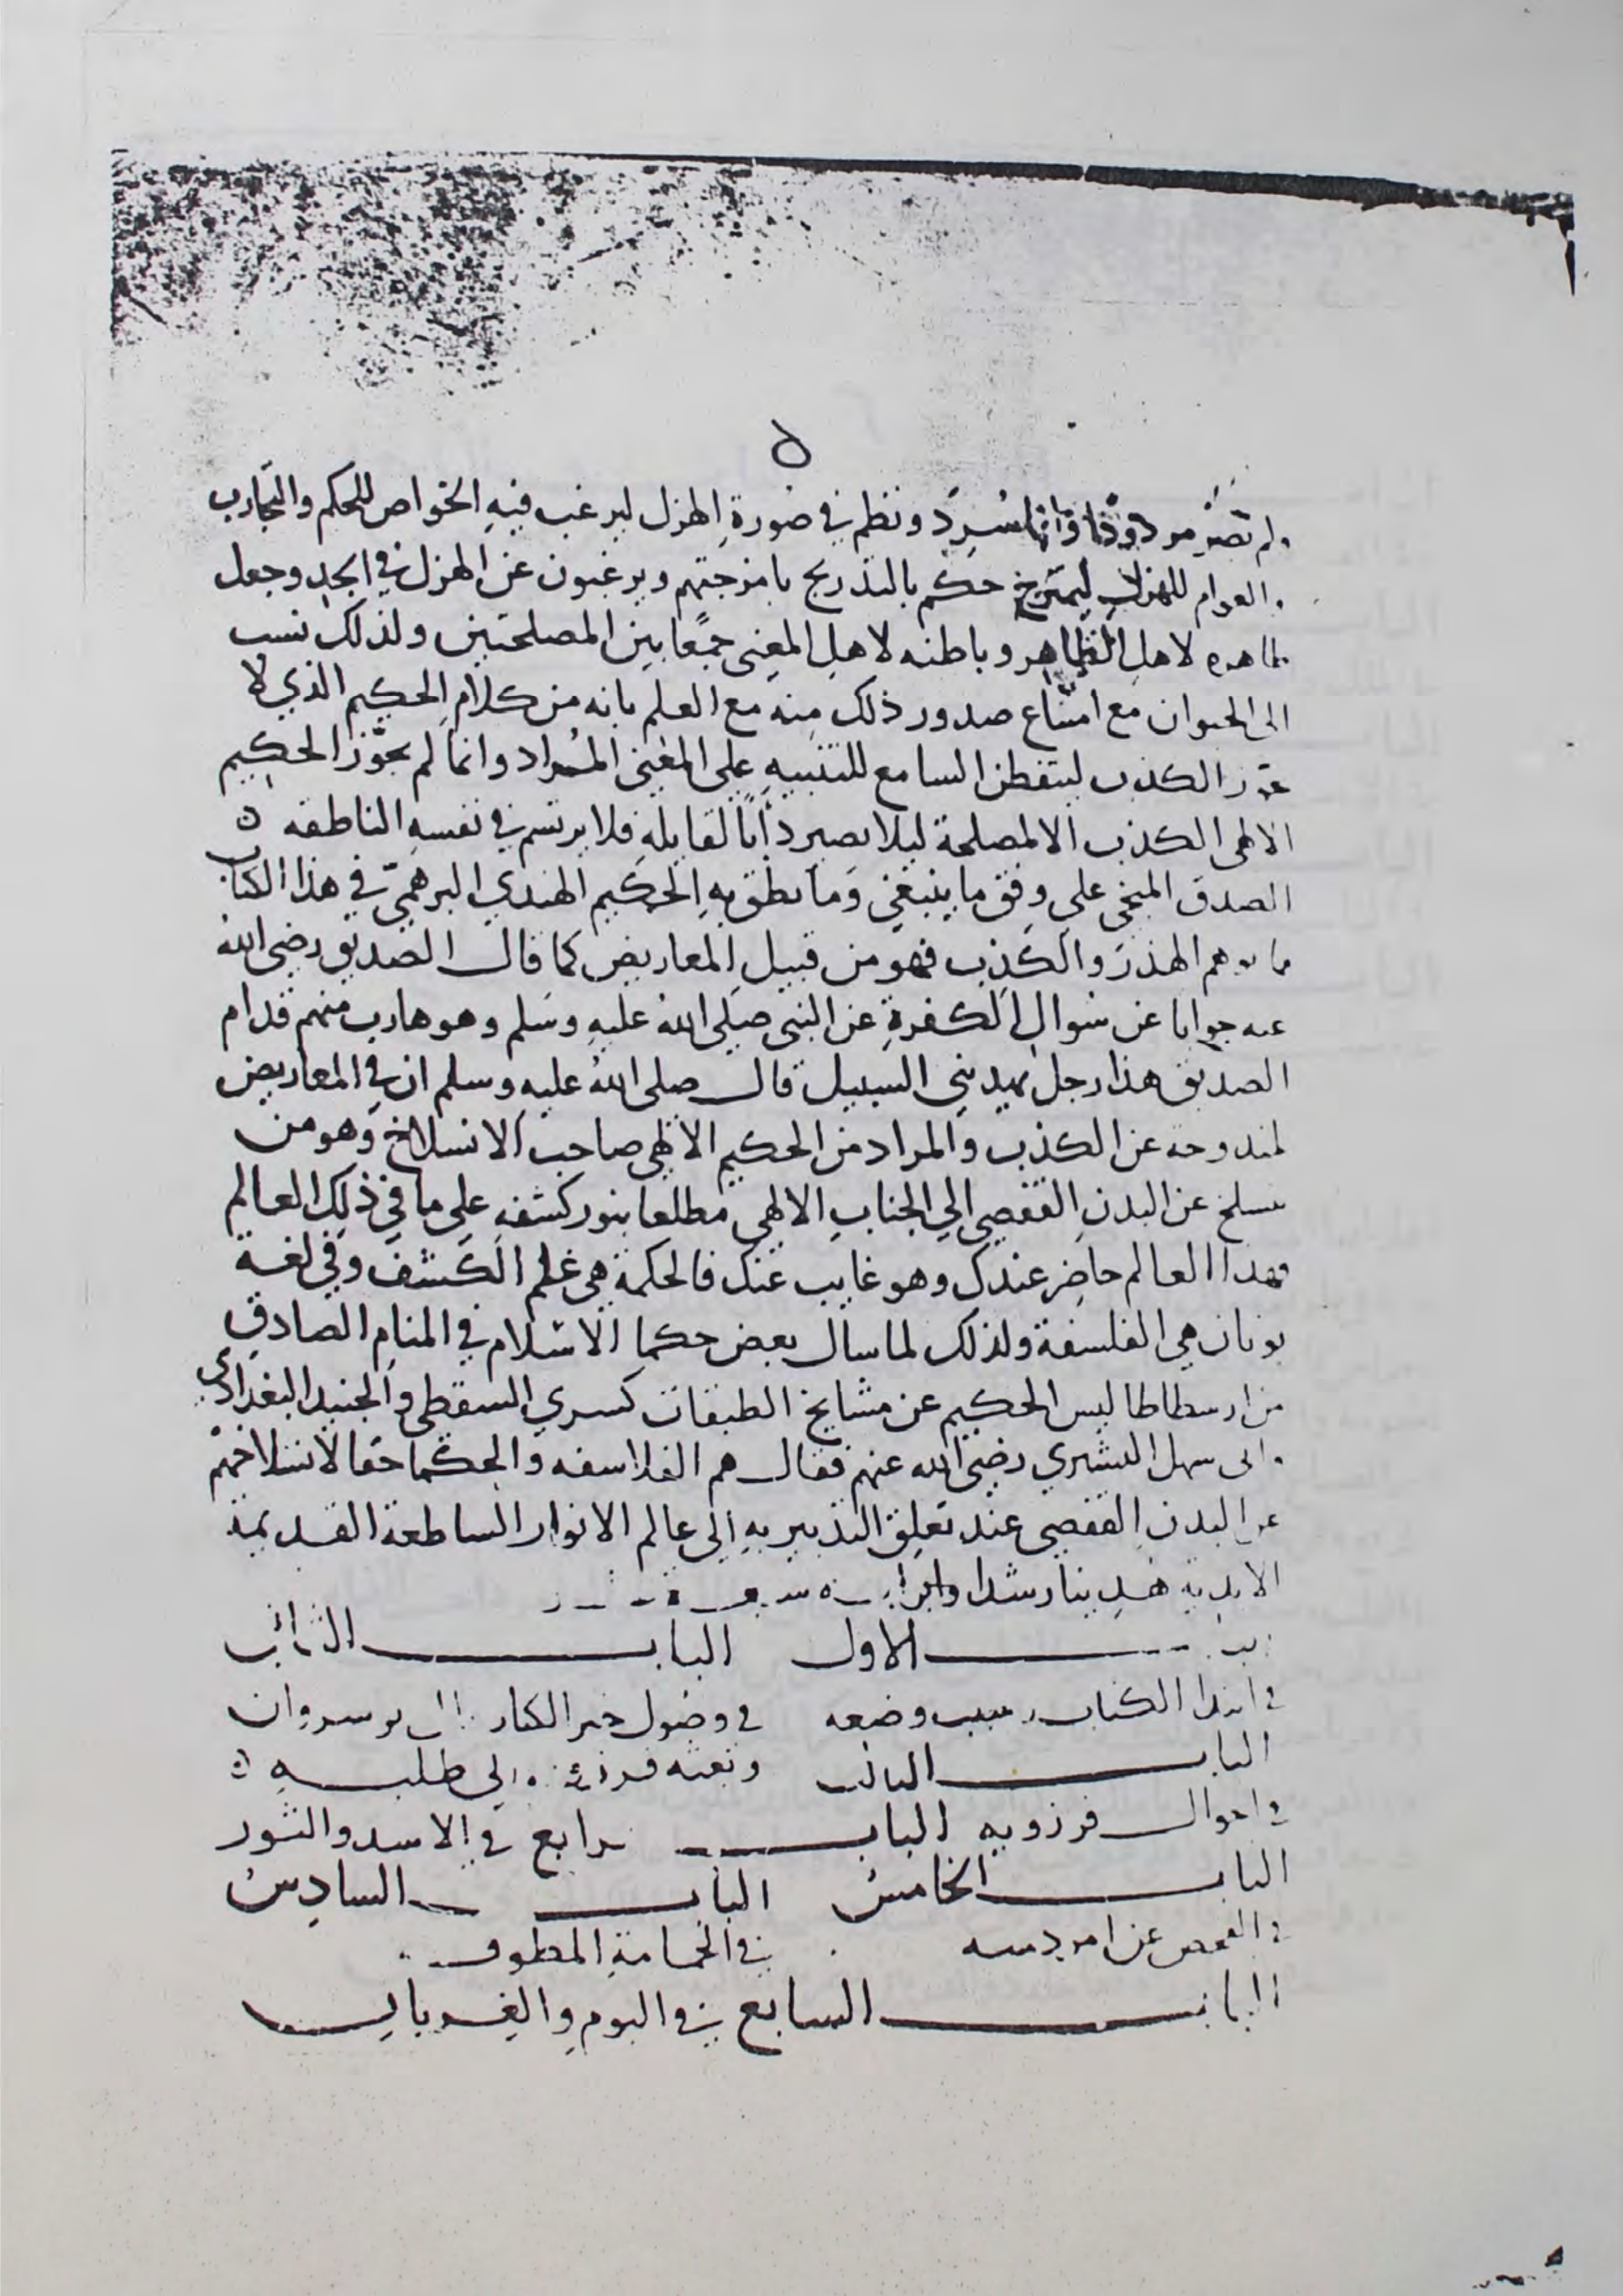 ولم تصر مردودًا وانما سُرِدَ ونظم في صُورةِ الهزل ليرغب فيهِ الخواص للحكم والتجارب
والعوام للهزل ليمتزج حكم بالتدريج بامزجتهم ويرغبون عن الهزل في الجد وجعل
ظاهره لاهل الظاهر وباطنه لاهلِ المعنى جمعًا بين المصلحتين ولذلك نسب
الى الحيوان مع امتناع صدور ذلك منه مع العلم بانه من كلام الحكيم الذي لا
الكذب ليتفطن السامع للتنبيهِ على المعنى المُراد وانما لم يجوّز الحكيم
الالهى الكذب الا لمصلحة ليلا يصير دأبًا لقايلهِ فلا يرتسم في نفسهِ الناطقه
الصدق على وفق ما ينبغي وَما نطق بهِ الحكيم الهندي البرهميّ في هذا الكتاب
مما يوهم الهذرَ والكذِب فهو من قبيلِ المعاريض كما قال الصديق رضي الله
عنه جوابا عن سُوال الكفرةِ عن النبى صَلى الله عليهِ وسَلم وهو هارب منهم قدام
الصديق هذا رجل يهديني السبيل قال صلى اللهُ عليهِ وسلم ان في المعاريض
لمندوحة عن الكذب والمراد من الحكيم الالهي صاحب الانسلاخ وهو من
ينسلخ عن البدنِ القفصي الى الجنابِ الالهي مطلعا بنور كشفهِ على ما في ذلك العالم
فهذا العالم حاضر عندك وهو غايب عنك فالحكمة هي علم الكشف وفي لغة
يونان هي الفلسفة ولذلك لما سال بعض حكما الاسلام في المنامِ الصادق
من ارسطاطاليس الحكيم عن مشايخ الطبقات كسري السقطي والجنيد البغدادى
وابى سهل التشتري رضي الله عنهم فقال هم الفلاسفه والحكما حقا لانسلاخهم
عن البدن القفصي عند تعلق التدبير بهِ الى عالم الانوار الساطعة القديمة
الابديه هُدِينا رشدا
الباب الاول الباب الثانى
في ابتدا الكتاب وسبب وضعه في وصُول خبر الكتاب الى نوسروان
الباب الثالث وبعثه الى طلبهِ
في احوال فرزويه الباب الرابع في الاسد والثور
الباب الخامس الباب السادس
في الفحص عن امر دمنه في الحمامةِ المطوقه
الباب السابع في البوم والغربان